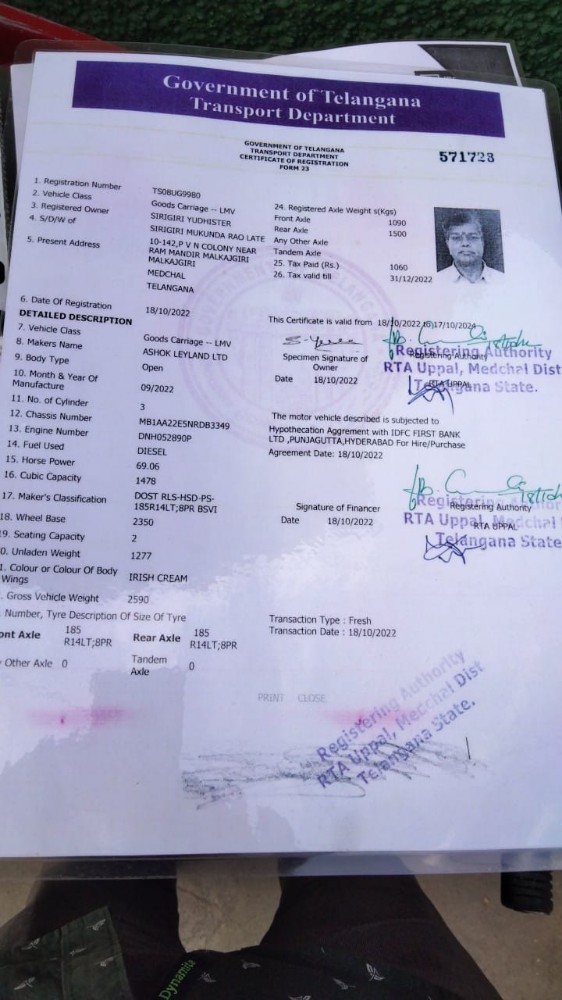 Government of Telangana
Transport Department
GOVERNMENT OF TELANGANA
TRANSPORT DEPARTMENT
CERTIFICATE OF REGISTRATION
FORM 23
571723
1. Registration Number TS08UG9980
2. Vehicle Class Goods Carriage -- LMV
3. Registered Owner SIRIGIRI YUDHISTER
4. S/D/W of SIRIGIRI MUKUNDA RAO LATE
5. Present Address 10-142,P V N COLONY NEAR
RAM MANDIR MALKAJGIRI
MALKAJGIRI
MEDCHAL
TELANGANA
24. Registered Axle Weight s(Kgs)
Front Axle 1090
Rear Axle 1500
Any Other Axle
Tandem Axle
25. Tax Paid (Rs.) 1060
26. Tax valid till 31/12/2022
6. Date Of Registration 18/10/2022
DETAILED DESCRIPTION
7. Vehicle Class Goods Carriage -- LMV
8. Makers Name ASHOK LEYLAND LTD
9. Body Type Open
10. Month & Year Of
Manufacture 09/2022
11. No. of Cylinder 3
12. Chassis Number MB1AA22E5NRDB3349
13. Engine Number DNH052890P
14. Fuel Used DIESEL
15. Horse Power 69.06
16. Cubic Capacity 1478
17. Maker's Classification DOST RLS-HSD-PS-
185R14LT;8PR BSVI
18. Wheel Base 2350
9. Seating Capacity 2
0. Unladen Weight 1277
. Colour or Colour Of Body
Wings IRISH CREAM
. Gross Vehicle Weight 2590
Number, Tyre Description Of Size Of Tyre
ont Axle 185
R14LT;8PR
Rear Axle 185
R14LT;8PR
Other Axle 0
Tandem
Axle 0
This Certificate is valid from 18/10/2022 to 17/10/2024
Specimen Signature of
Owner
Date 18/10/2022
Registering Authority
Registering Authority
RTA Uppal, Medchal Dist
RTA UPPAL
Telangana State.
The motor vehicle described is subjected to
Hypothecation Aggrement with IDFC FIRST BANK
LTD ,PUNJAGUTTA,HYDERABAD For Hire/Purchase
Agreement Date: 18/10/2022
Signature of Financer
Date 18/10/2022
Registering Author
Registering Authority
RTA Uppal, Medchal
RTA UPPAL
Telangana State
Transaction Type : Fresh
Transaction Date : 18/10/2022
PRINT CLOSE
Registering Authority
RTA Uppal, Medchal Dist
Telangana State.
Dynamite